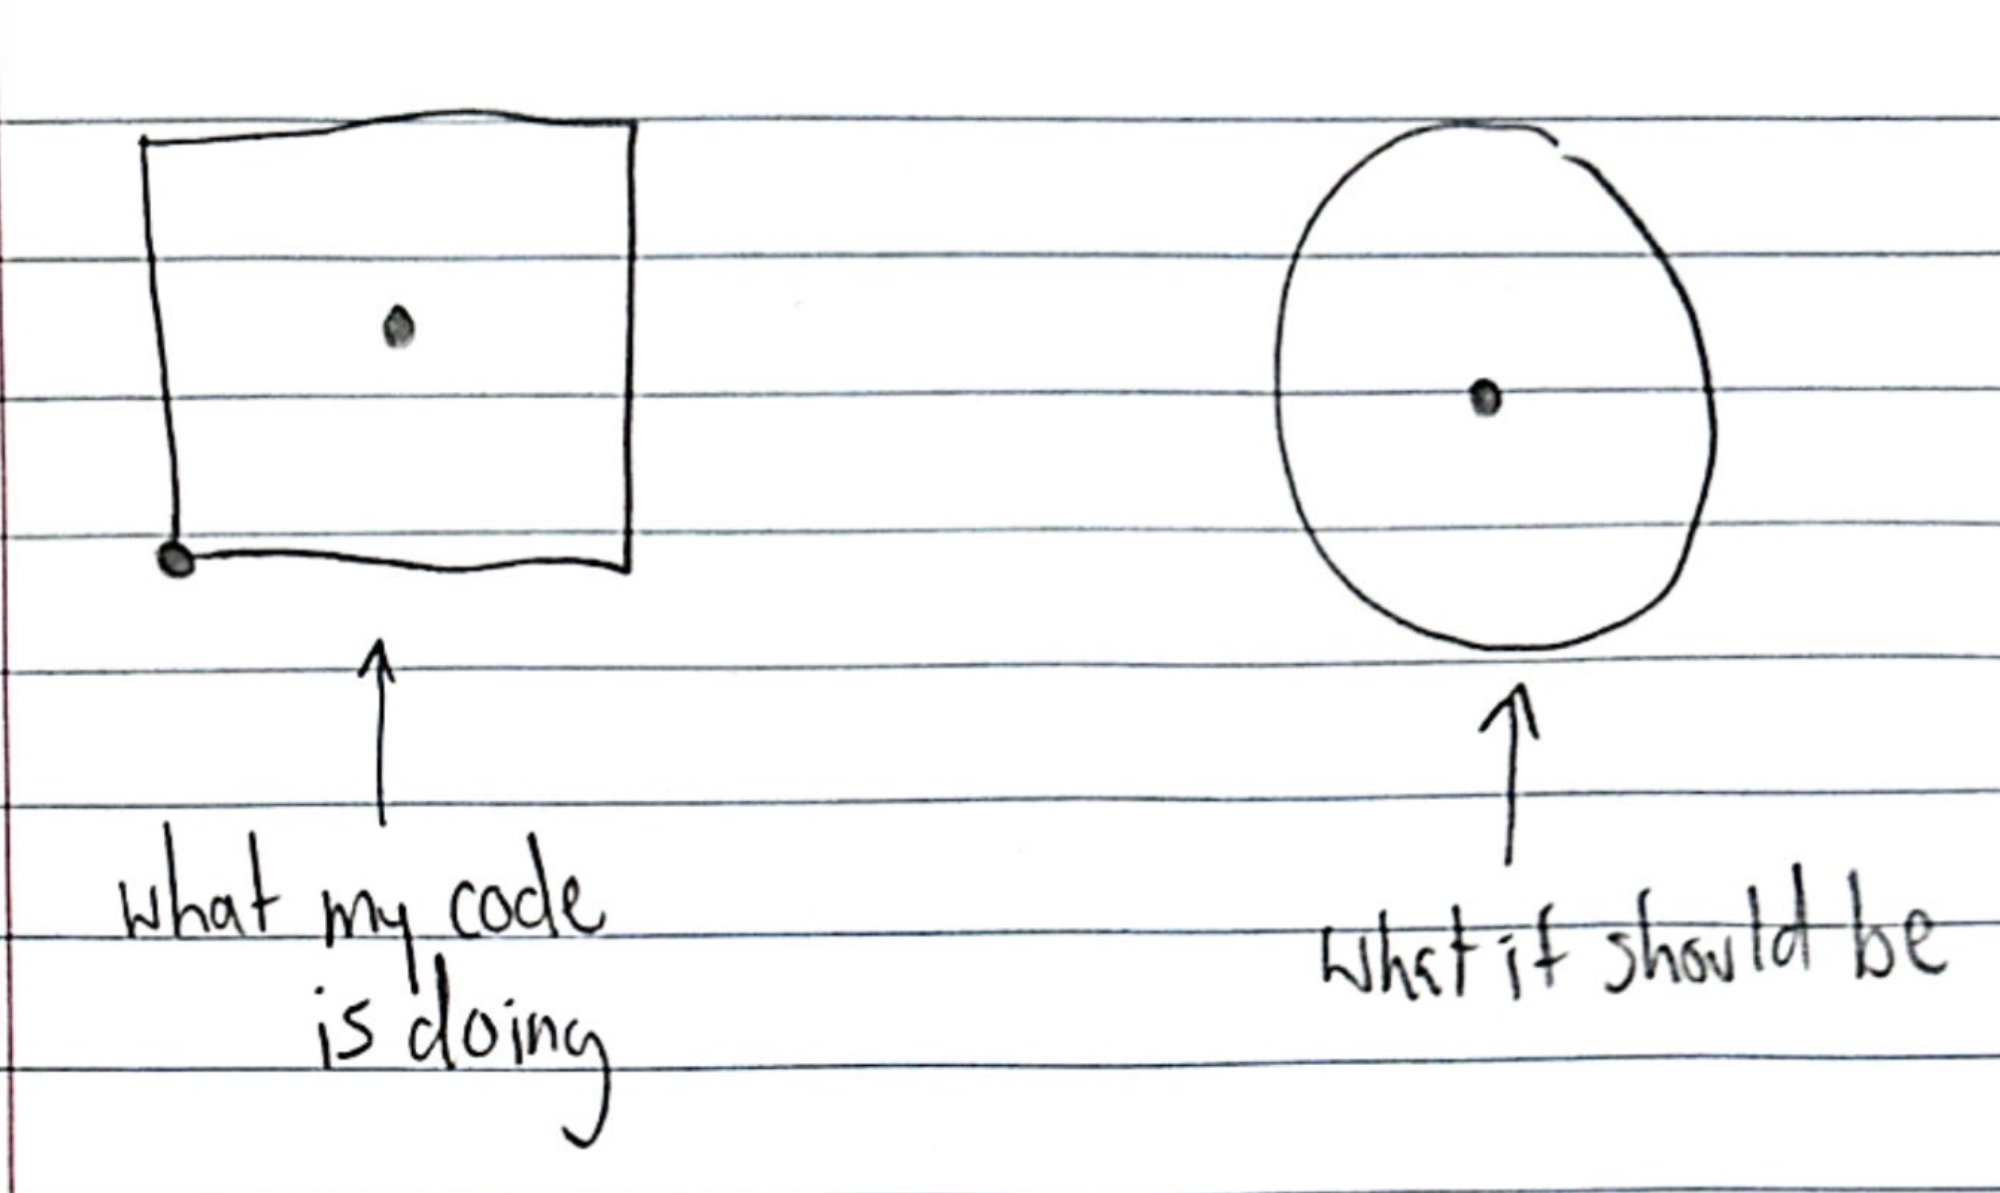 what my code
is doing
what it should be